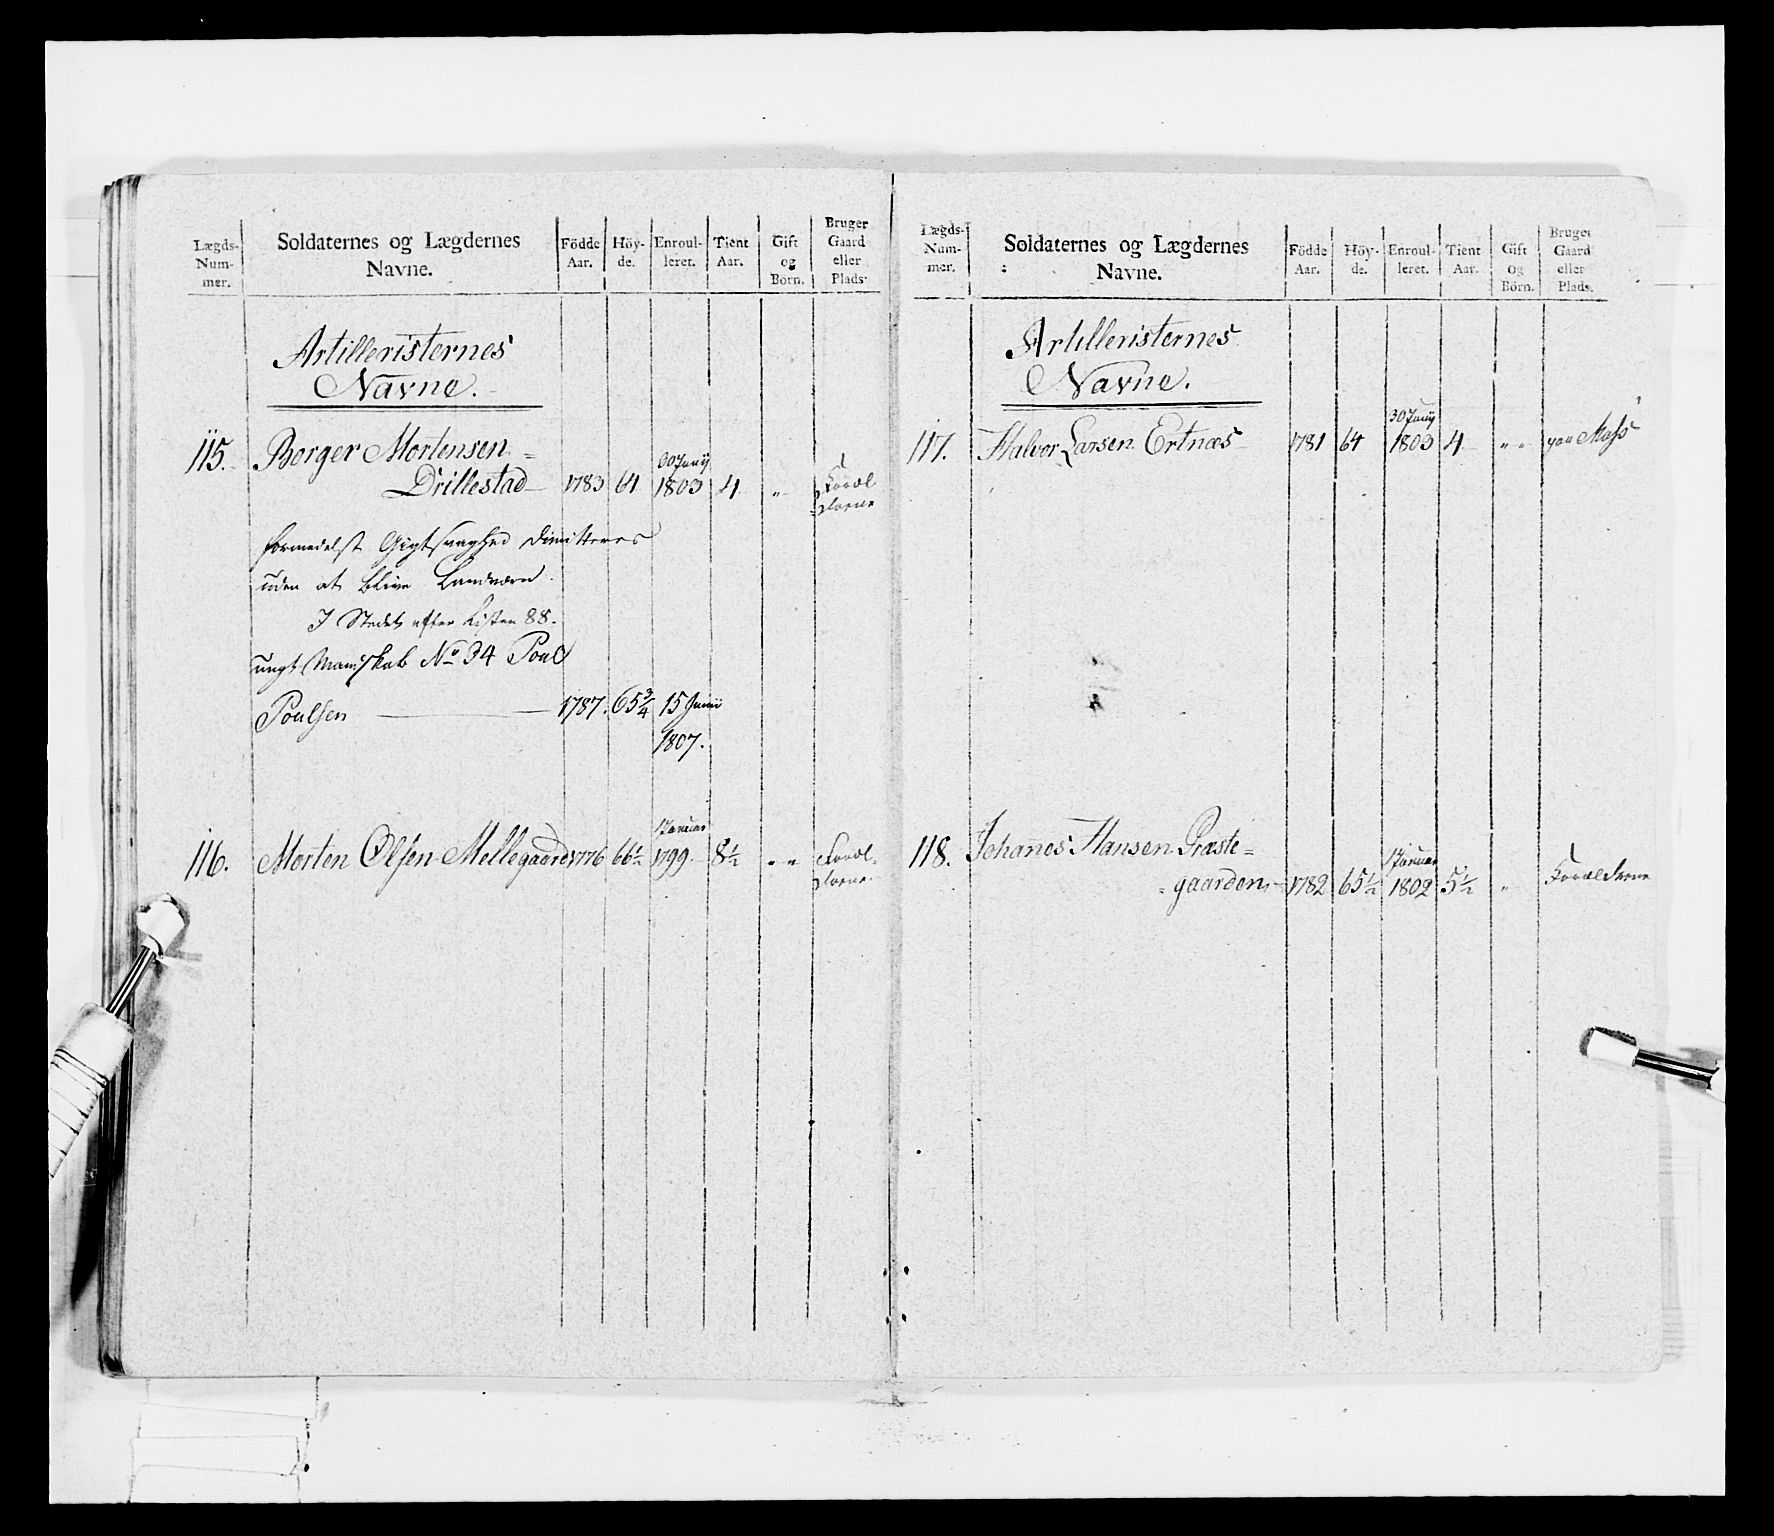 Lægds-Nummer. | Soldaternes og Lægdernes Navne. | Födde Aar. | Höyde. | Enroulleret. | Tient Aar. | Gift og Börn. | Bruger Gaard eller Plads.
Artilleristernes
Navne.
115. Borger Mortensen
Drillestad 1783 64 30 Junij 1803 4 „ Foræl
drene
formedelst Gigtsvaghed dimitteres
uden at blive Landværn.
I Stedet efter Listen 88.
ungt Mandskab No 34 Poul
Poulsen 1787. 65 3/4 15 Junii
1807.
116. Morten Olsen Mellegaard 1776 66 1/2 1 Januar 1799 8 1/2 „ „ Foræl-
drene.
Lægds-Nummer. | Soldaternes og Lægdernes Navne. | Födde Aar. | Höyde. | Enroulleret. | Tient Aar. | Gift og Börn. | Bruger Gaard eller Plads.
Artilleristernes
Navne.
117. Halvor Larsen Ertnæs 1781 64 30 Junij 1803 4 „ „ paa
118. Johannes Hansen Præste=
=gaarden 1782 65 1/2 1 Januar 1802 5 1/2 „ Forældrene